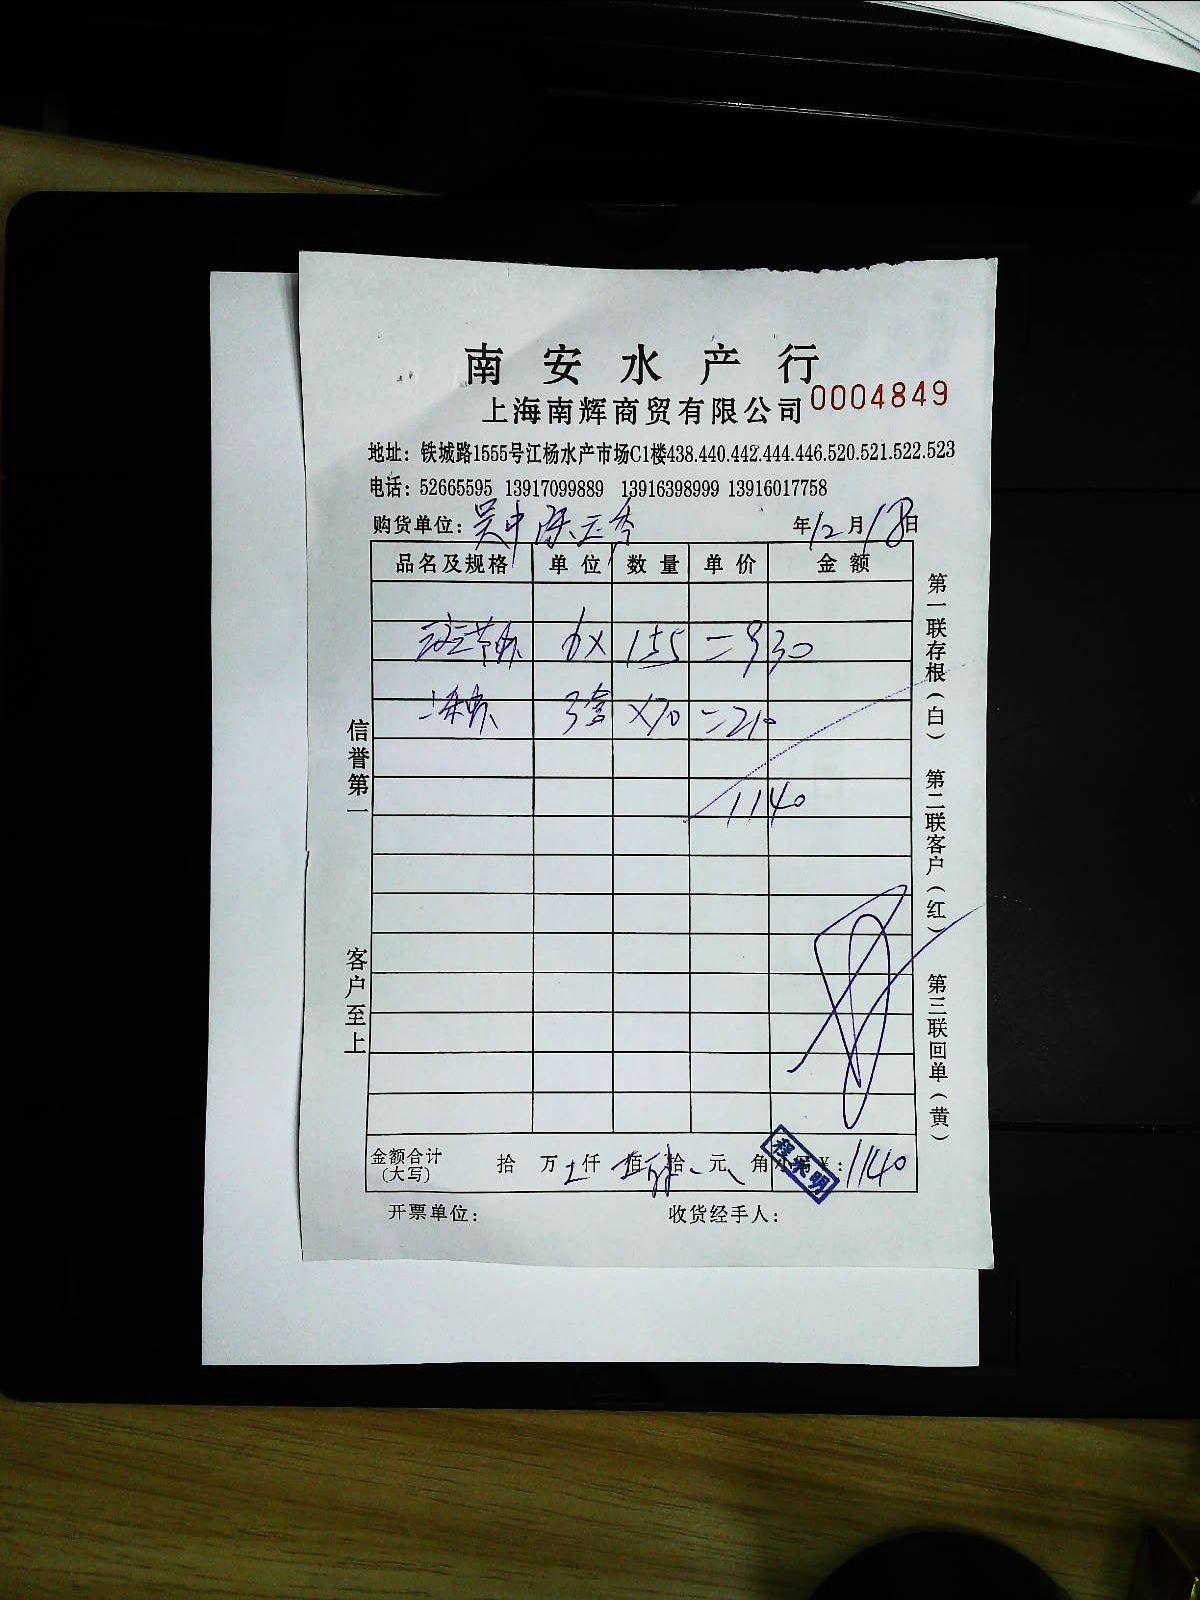 南安水产行
上海南辉商贸有限公司 0004849
地址：铁城路1555号江杨水产市场C1楼438.440.442.444.446.520.521.522.523
电话：52665595 13917099889 13916398999 13916017758
购货单位： 年12月18日
品名及规格 单位 数量 单价 金额
6× 155 =930
3 ×70 =210
1140
金额合计（大写） 拾 万 仟 佰 拾 元 角 ：1140
程来明
开票单位： 收货经手人：
信誉第一 客户至上
第一联存根（白） 第二联客户（红） 第三联回单（黄）